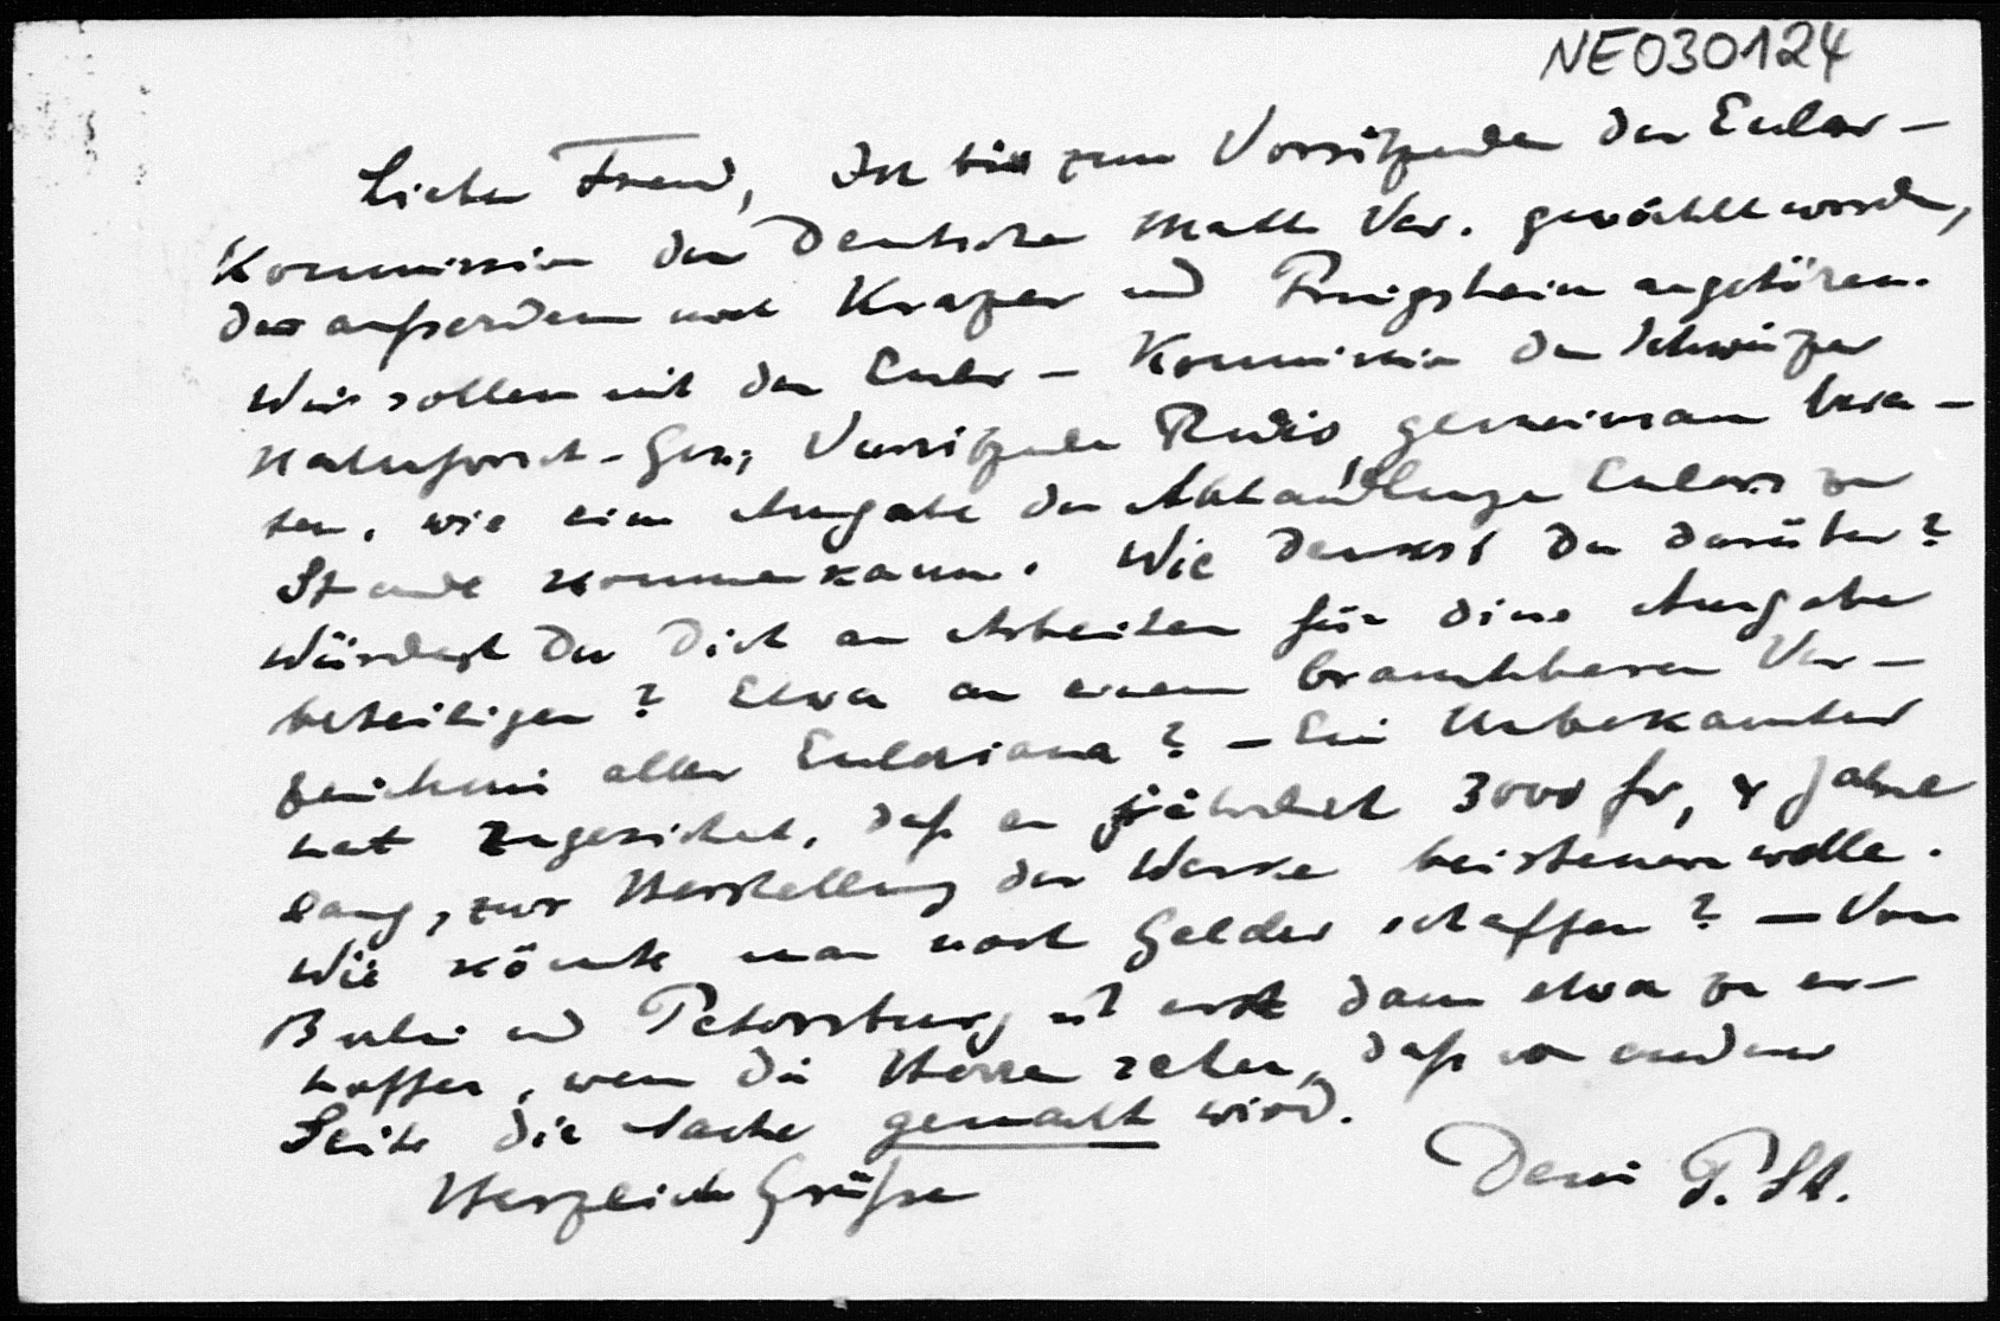 NE030124
Lieber Freund, Ich bin zum Vorsitzenden der Euler-
Kommission der Deutschen Math Ver. gewählt worden,
der außerdem noch Krazer und Pringsheim angehören.
Wir sollen mit der Euler-Kommission der Schweizer
Naturforsch-Ges, Vorsitzender Rudio, gemeinsam bera-
ten, wie eine Ausgabe der Abhandlungen Eulers zu
Stande kommen kann. Wie denkst Du darüber?
Würdest Du Dich an Arbeiten für diese Ausgabe
beteiligen? Etwa an einem brauchbaren Ver-
zeichnis aller Euleriana? - Ein Unbekannter
hat zugesichert, daß er jährlich 3000 fr, 4 Jahre
lang, zur Herstellung der Werke beisteuern wolle.
Wie könnte man noch Gelder schaffen? - Von
Berlin und Petersburg ist erst dann etwa zu er-
hoffen, wenn die Herren sehen, daß von anderer
Seite die Sache gemacht wird.
Herzliche Grüße
Dein P. St.